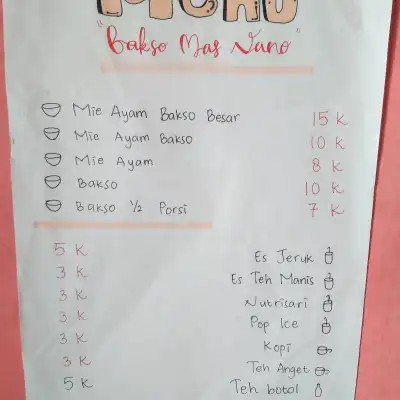 MENU
"Bakso Mas Nano"
Mie Ayam Bakso Besar 15 K
Mie Ayam Bakso 10 K
Mie Ayam 8 K
Bakso 10 K
Bakso 1/2 Porsi 7 K
5 K Es Jeruk
3 K Es Teh Manis
3 K Nutrisari
3 K Pop Ice
3 K Kopi
3 K Teh Anget
5 K Teh botol